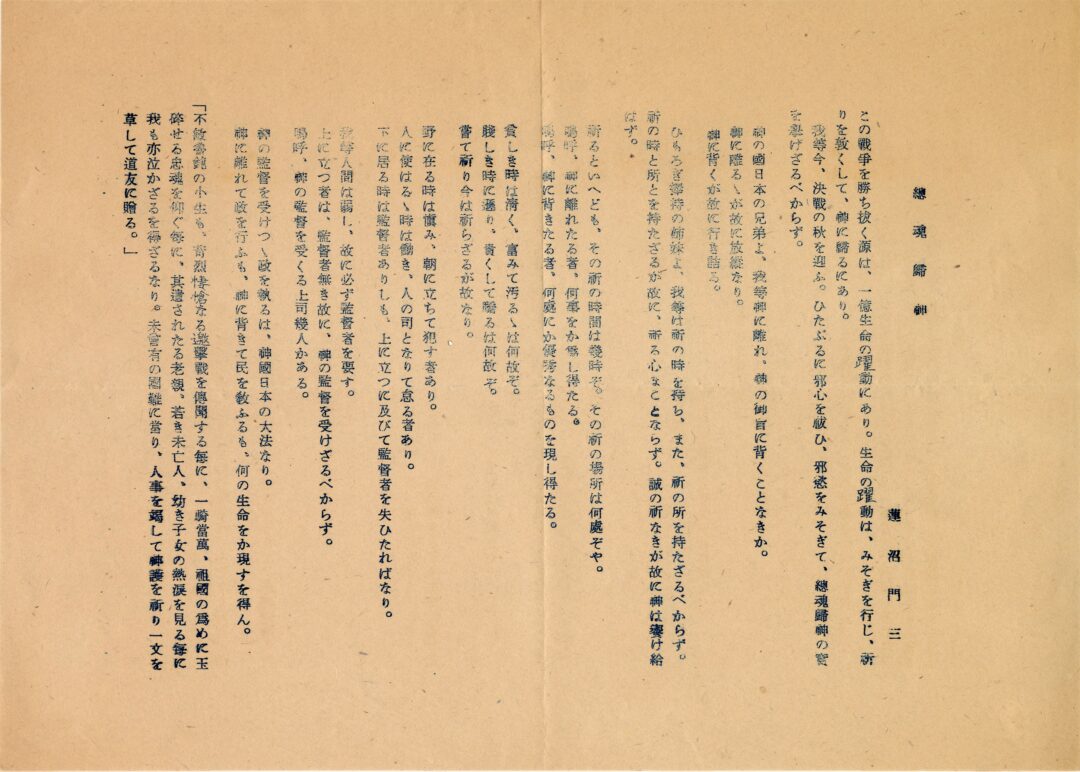 總魂歸神
蓮沼門三
この戰爭を勝ち拔く源は、一億生命の躍動にあり。生命の躍動は、みそぎを行じ、祈
りを敦くして、神に歸るにあり。
我等今、決戰の秋を迎ふ。ひたぶるに邪心を祓ひ、邪慾をみそぎて、總魂歸神の實
を擧げざるべからず。
神の國日本の兄弟よ、我等神に離れ、神の御旨に背くことなきか。
神に離るゝが故に放縱なり。
神に背くが故に行き詰る。
ひもろぎ奉持の姉妹よ、我等は祈の時を持ち、また、祈の所を持たざるべからず。
祈の時と所とを持たざるが故に、祈る心まことならず。誠の祈なきが故に神は享け給
はず。
祈るといへども、その祈の時間は幾時ぞ。その祈の場所は何處ぞや。
嗚呼、神に離れたる者、何事をか爲し得たる。
嗚呼、神に背きたる者、何處にか優秀なるものを現し得たる。
貧しき時は淸く、富みて汚るゝは何故ぞ。
賤しき時に遜り、貴くして驕るは何故ぞ。
嘗て祈り今は祈らざるが故なり。
野に在る時は愼み、朝に立ちて犯す者あり。
人に使はるゝ時は働き、人の司となりて怠る者あり。
下に居る時は監督者ありしも、上に立つに及びて監督者を失ひたればなり。
我等人間は弱し、故に必ず監督者を要す。
上に立つ者は、監督者無き故に、神の監督を受けざるべからず。
嗚呼、神の監督を受くる上司幾人かある。
神の監督を受けつゝ政を執るは、神國日本の大法なり。
神に離れて政を行ふも、神に背きて民を敎ふるも、何の生命をか現すを得ん。
「不敏魯鈍の小生も、苛烈悽愴なる邀擊戰を傳聞する每に、一騎當萬、祖國の爲めに玉
碎せる忠魂を仰ぐ每に、其遺されたる老親、若き未亡人、幼き子女の熱淚を見る每に
我も亦泣かざるを得ざるなり。未曾有の國難に當り、人事を竭して神護を祈り一文を
草して道友に贈る。」